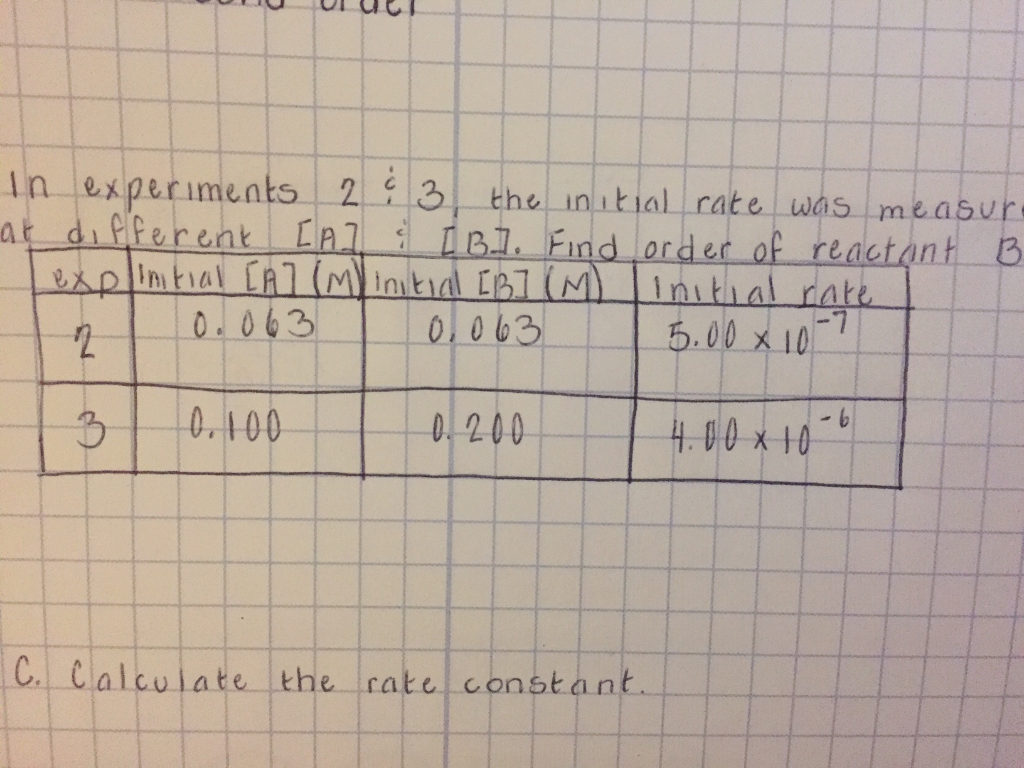 order
In experiments 2 & 3, the initial rate was measur
at different [A] & [B]. Find order of reactant B
exp Initial [A] (M) Initial [B] (M) Initial rate
2 0.063 0.063 5.00 x 10⁻⁷
3 0.100 0.200 4.00 x 10⁻⁶
C. Calculate the rate constant.